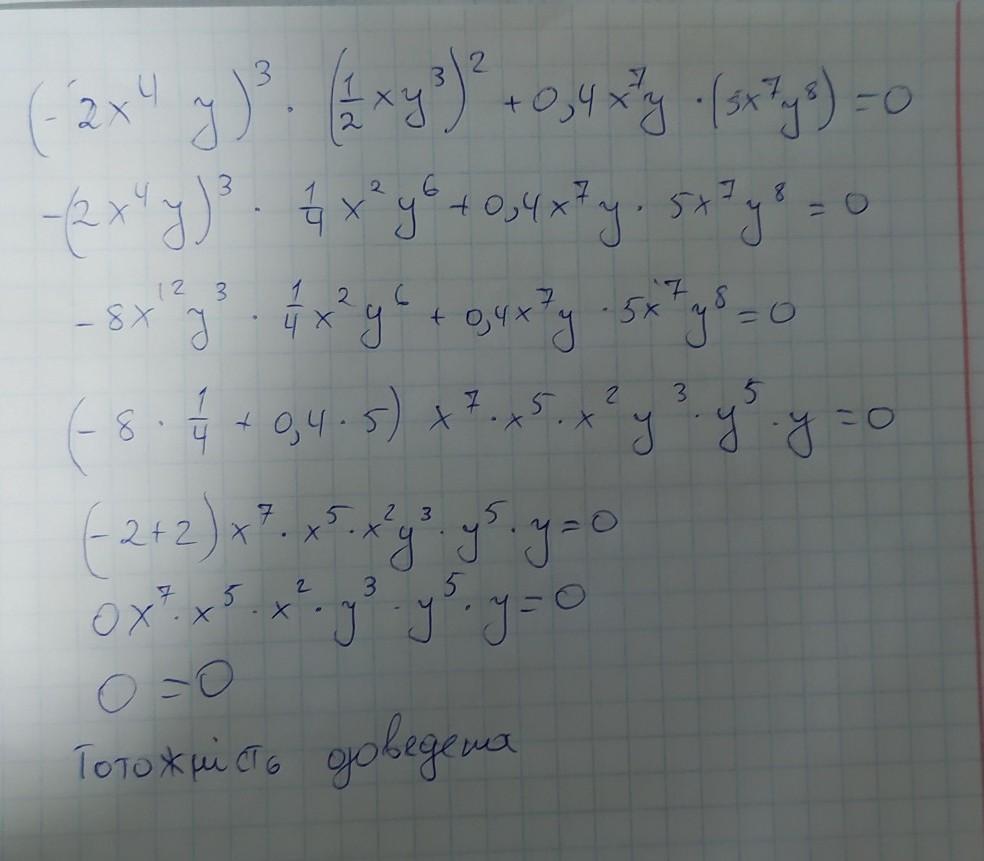 (-2x⁴ y)³ · (1/2 xy³)² + 0,4x⁷y · (5x⁷y⁸) = 0
-(2x⁴y)³ · 1/4 x² y⁶ + 0,4x⁷y · 5x⁷y⁸ = 0
- 8x¹² y³ · 1/4 x² y⁶ + 0,4x⁷y · 5x⁷y⁸ = 0
(- 8 · 1/4 + 0,4 · 5) x⁷ · x⁵ · x² y³ · y⁵ · y = 0
(-2+2) x⁷ · x⁵ · x² y³ · y⁵ · y = 0
0x⁷ · x⁵ · x² · y³ · y⁵ · y = 0
0 = 0
Тотожність доведена